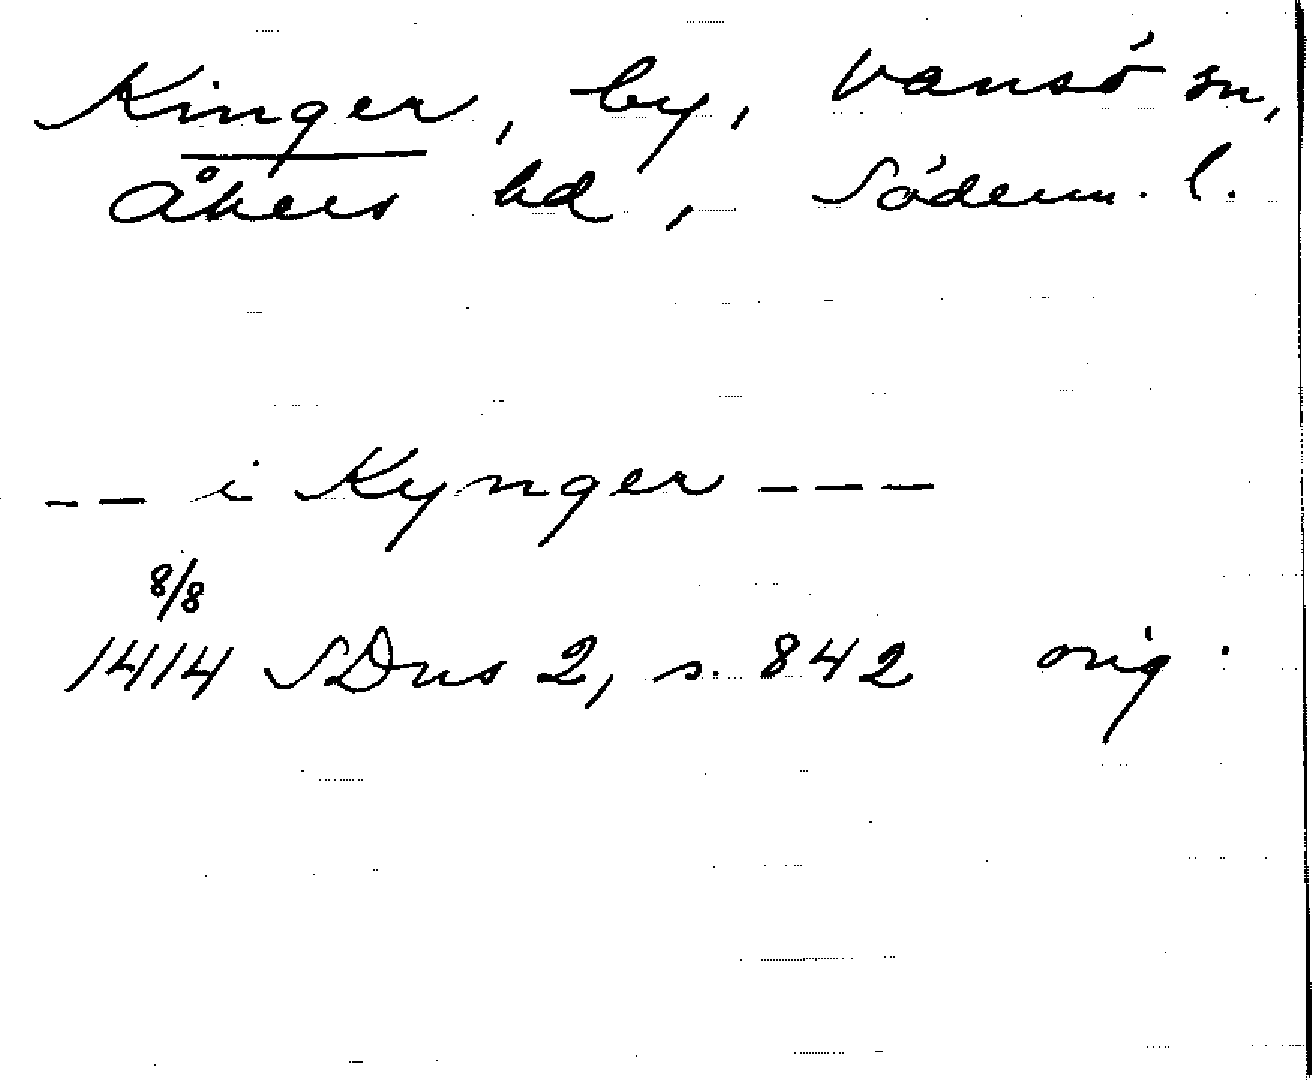 Kinger, by, Vansö sn,
Åkers hd, Söderm. l.
-- i Kynger ---
8/8
1414 SDns 2, s. 842 orig.